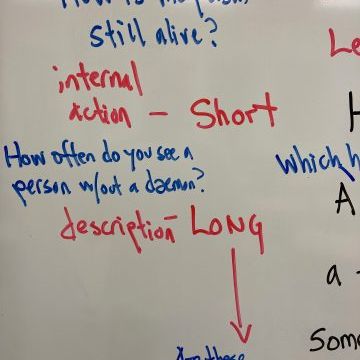 still alive?
internal
action - Short
How often do you see a
person w/out a daemon?
description - LONG
Le
H
which h
A
a -
Some